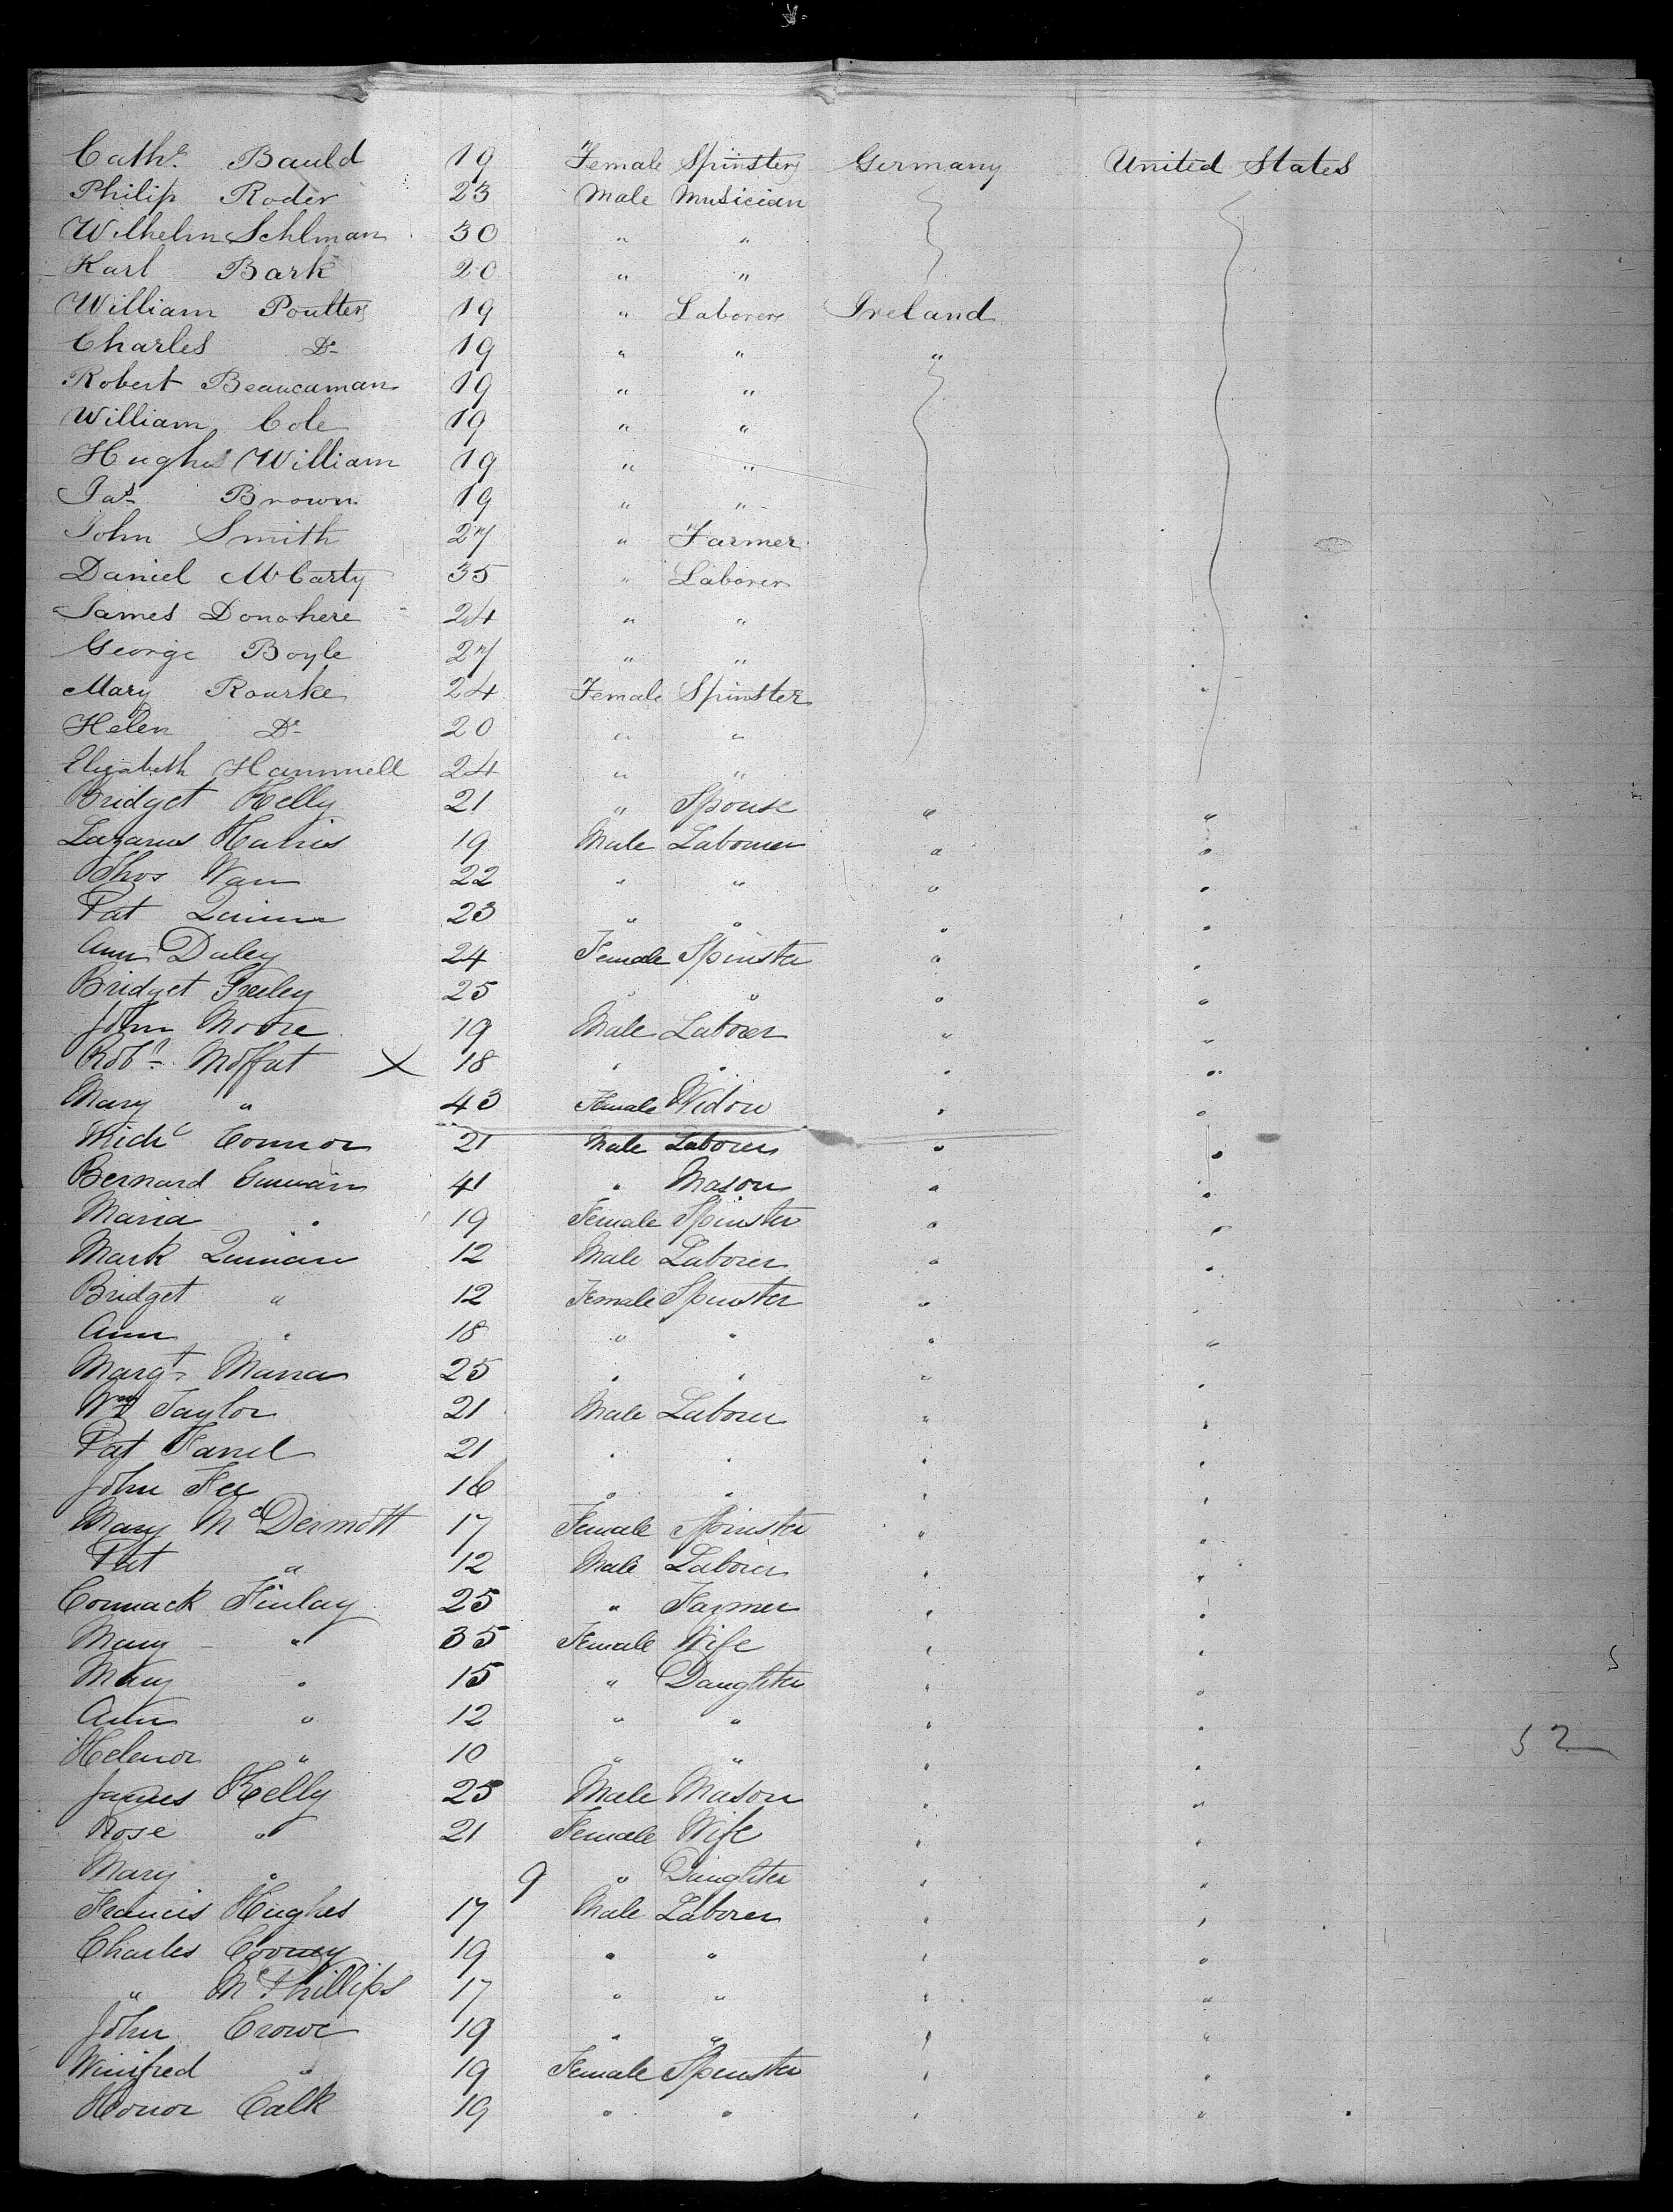 Cathe. Bauld 19 Female Spinster Germany United States
Philip Roder 23 Male Musician
Wilhelm Schlman 30 " "
Karl Bark 20 " "
William Poulter 19 " Laborer Ireland
Charles Do 19 " " "
Robert Beaucaman 19 " "
William Cole 19 " "
Hughes William 19 " "
Jas Brown 19 " "
John Smith 27 " Farmer
Daniel McCarty 35 " Laborer
James Donohere 24 " "
George Boyle 27 " "
Mary Rourke 24 Female Spinster "
Helen Do 20 " "
Elizabeth Hammell 24 " "
Bridget Kelly 21 " Spouse " "
Lazarus 19 Male Laborer " "
Thos 22 " " " "
Pat Quinn 23 " " " "
Ann Daley 24 Female Spinster " "
Bridget Feeley 25 " " " "
John Moore 19 Male Laborer " "
Robt Moffat X 18 " " " "
Mary " 43 Female Widow " "
Michl Connor 21 Male Laborer " "
Bernard 41 " Mason " "
Maria " 19 Female Spinster " "
Mark 12 Male Laborer " "
Bridget " 12 Female Spinster " "
Ann " 18 " " " "
Margt 25 " " " "
Wm Taylor 21 Male Laborer " "
Pat 21 " " " "
John Fee 16 " " " "
Mary McDermott 17 Female Spinster " "
Pat " 12 Male Laborer " "
Cormack Finlay 25 " Farmer " "
Mary " 35 Female Wife " "
Mary " 15 " Daughter " "
Ann " 12 " " " "
Helenor " 10 " " " "
James Kelly 25 Male Mason " "
Rose " 21 Female Wife " "
Mary " 9 " Daughter " "
Francis Hughes 17 Male Laborer " "
Charles Cooney 19 " " " "
" McPhillips 17 " " " "
John Crowe 19 " " " "
Winifred " 19 Female Spinster " "
Honor Calk 19 " " " "
52